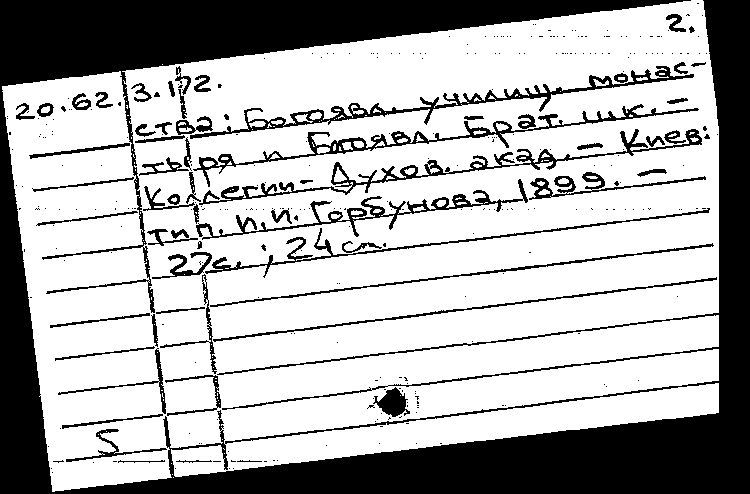 2.
20.62.3.172.
ства: Богоявл. училищ. монас-
тыря и Бгоявл. Брат. шк. –
Коллегии – Духов. акад. – Киев:
тип. И.И. Горбунова, 1899. –
27с. ; 24 cm.
S